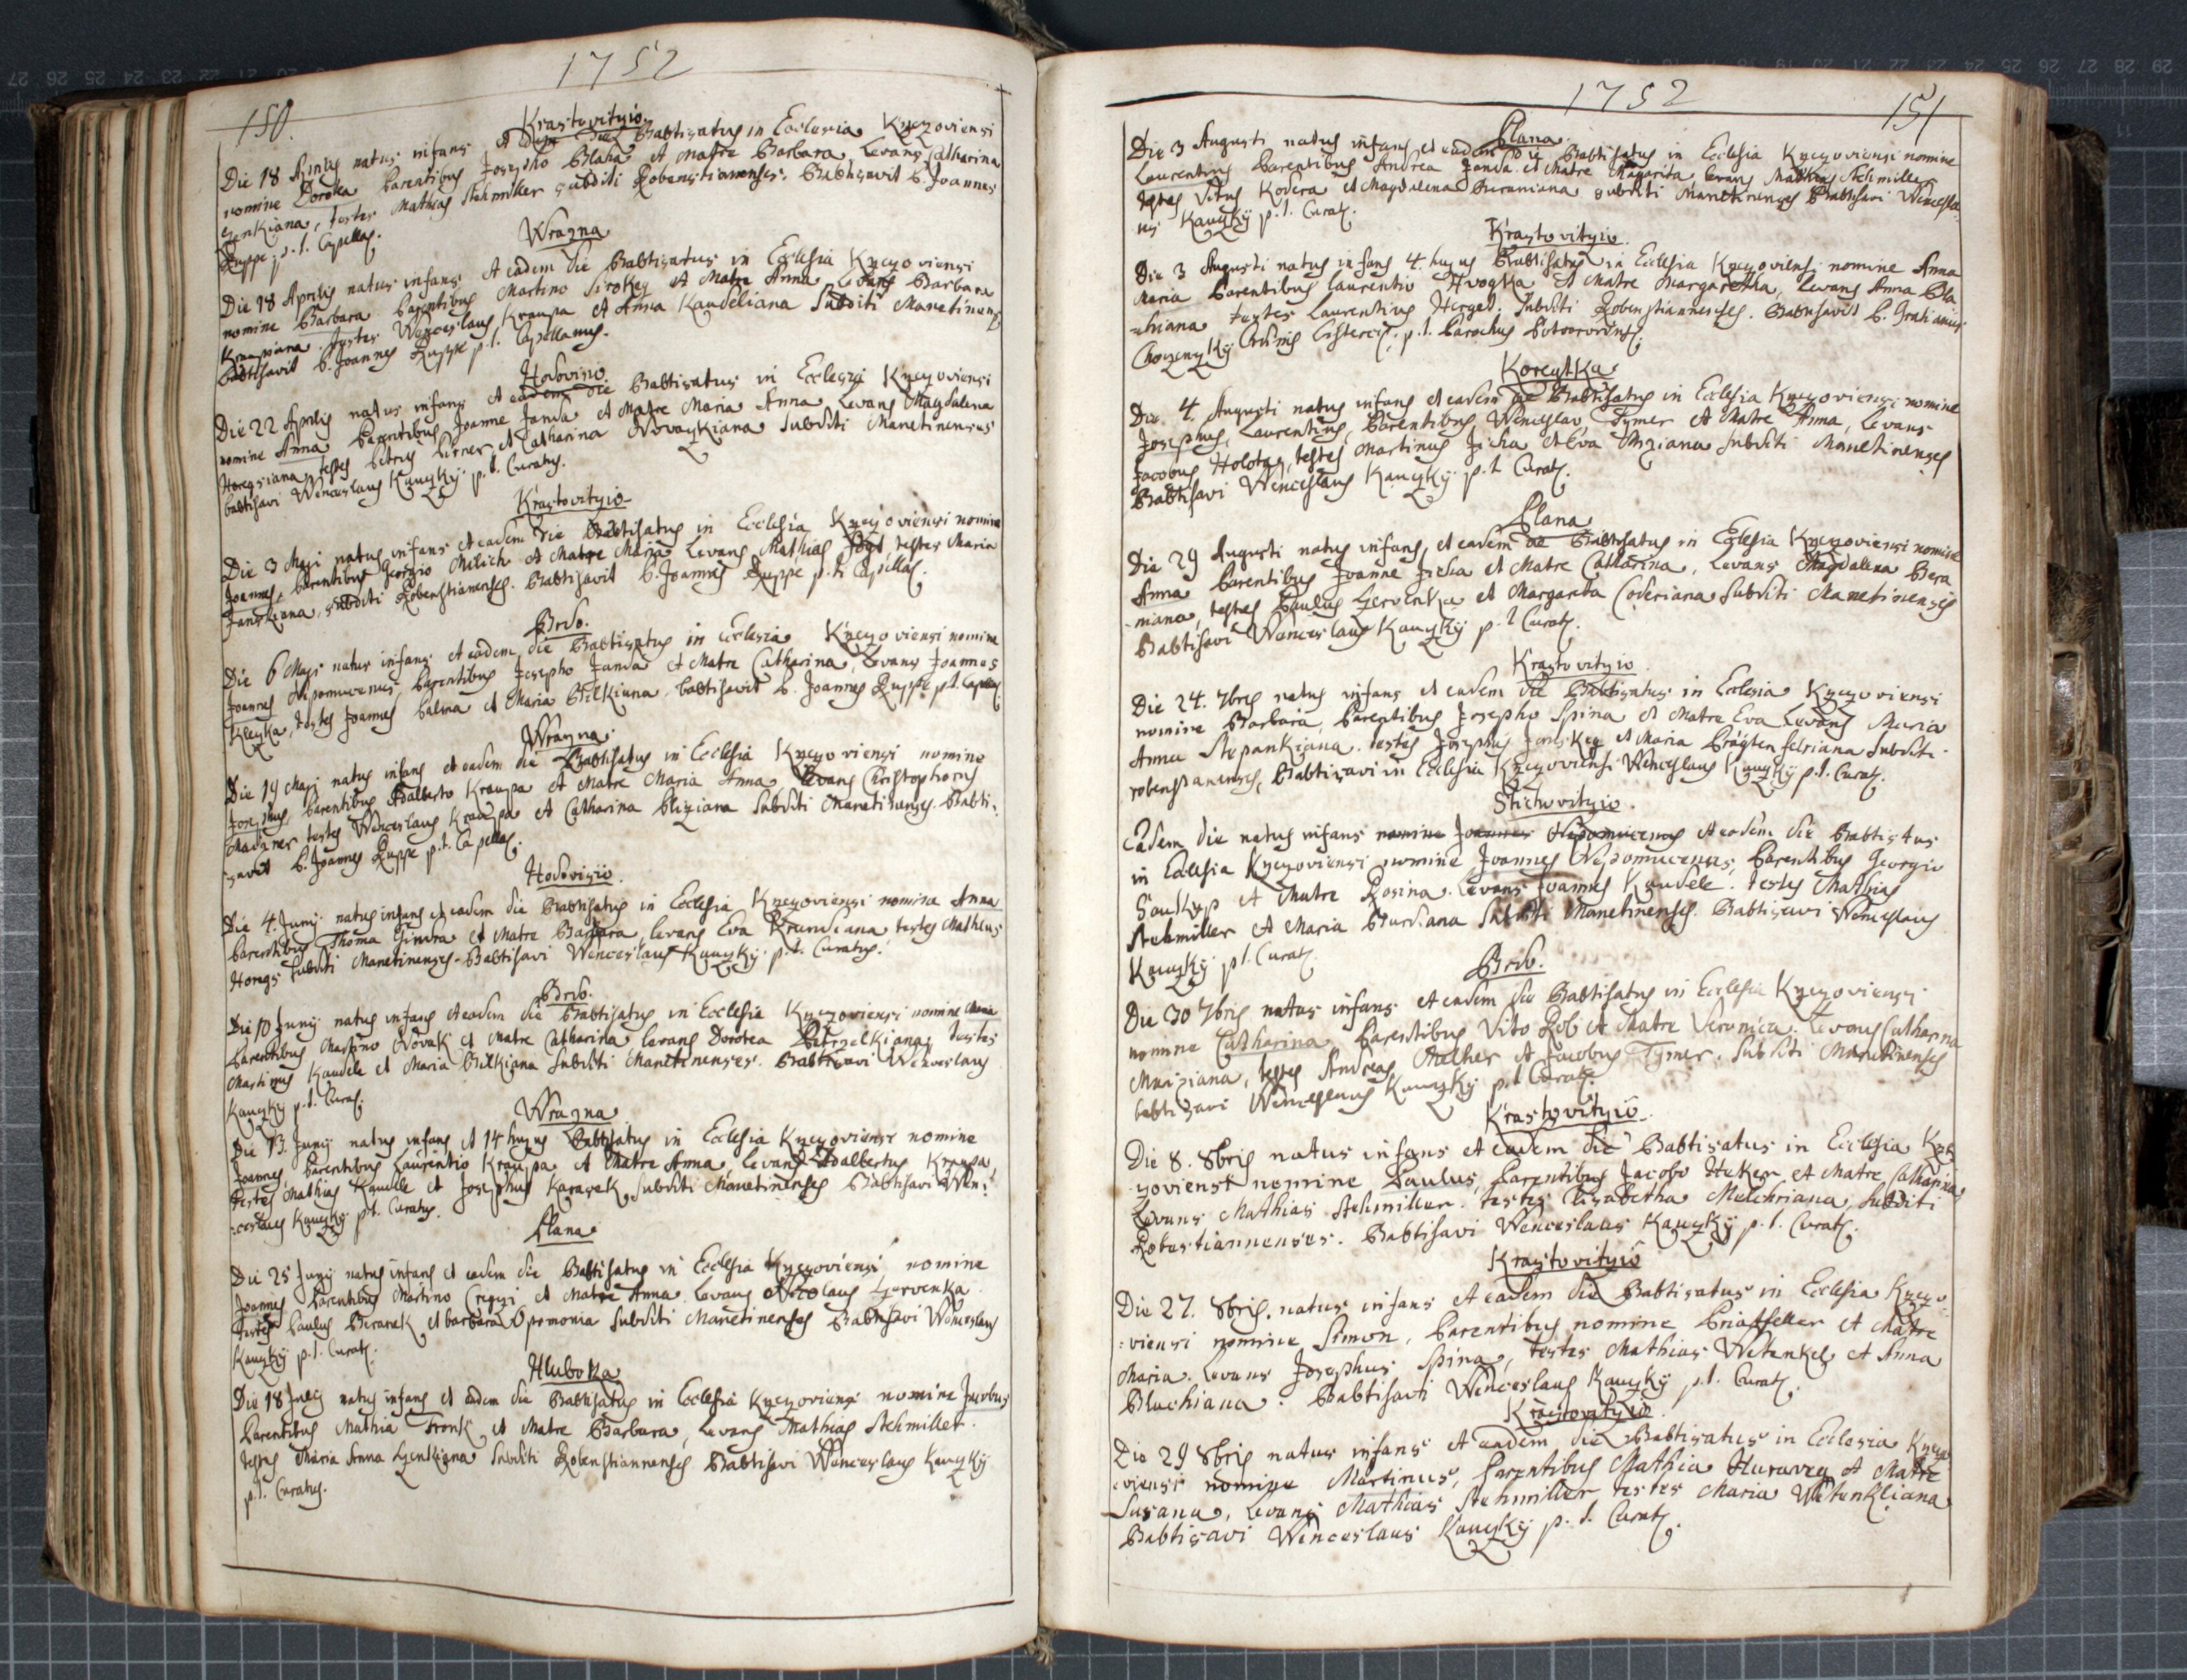 1752
150.
Krastovityio
Die 18 Aprilis natus infans et eadem die Babtisatus in Ecclesia Knezoviensi
nomine Dorota Parentibus Josepho Blaha et Matre Barbara, Levans Catharina
testes Mathias Stehmiller subditi Robenstianenses. Babtisavit P. Joannes
Ruppe p. t. Capellan.
Wrazna
Die 18 Aprilis natus infans et eadem die Babtisatus in Ecclesia Knezoviensi
nomine Barbara Parentibus Martino Sirokey et Matre Anna Levans Barbara
Kraupiana. Testes Wenceslaus Kraupa et Anna Kaudeliana Subditi Manetinens
Babtisavit P. Joannes Ruppe p. t. Capellanus.
Hodovizio
Die 22 Aprilis natus infans et eadem die Babtisatus in Ecclesia Knezoviensi
nomine Anna Parentibus Joanne Janda et Matre Maria Anna, Levans Magdalena
testes Petrus et Catharina Novazkiana Subditi Manetinenses
babtisavi Wenceslaus Kauzky p. t. Curatus.
Krastovityio
Die 3 Maji natus infans et eadem die Babtisatus in Ecclesia Knezoviensi nomine
Joannes, Parentibus Georgio Milich et Matre Maria Levans Mathias testes Maria
subditi Robenstianenses. Babtisavit P. Joannes Ruppe p. t. Capellan.
Brdo.
Die 6 Maji natus infans et eadem die Babtisatus in Ecclesia Knezoviensi nomine
Joannes Nepomucenus, Parentibus Josepho Janda et Matre Catharina, Levans Joannes
Kleyka, testes Joannes et Maria Bilkiana babtisavit P. Joannes Ruppe p. t. Capellan
Wrazna.
Die 19 Maji natus infans et eadem die Babtisatus in Ecclesia Knezoviensi nomine
Josephus, Parentibus Adalberto Kraupa et Matre Maria Anna Levans Christophorus
testes Wenceslaus Kraupa et Catharina Subditi Manetinenses. Babti-
savit P. Joannes Ruppe p. t. Capellan.
Hodovizio.
Die 4. Junij natus infans et eadem die Babtisatus in Ecclesia Knezoviensi nomine Anna
Parentibus Thoma et Matre Barbara, Levans Eva testes Mathias
Subditi Manetinenses. Babtisavi Wenceslaus Kauzky p. t. Curatus.
Brdo.
Die 10 Junij natus infans et eadem die Babtisatus in Ecclesia Knezoviensi nomine
Parentibus Martino Novak et Matre Catharina Levans Dorotea testes
Martinus Kaudele et Maria Bilkiana Subditi Manetinenses. Babtisavi Wenceslaus
Kauzky p. t. Curat.
Wrazna
Die 13. Junij natus infans et 14 hujus Babtisatus in Ecclesia Knezoviensi nomine
Joannes, Parentibus Laurentio Kraupa et Matre Anna, Levans Adalbertus Kraupa,
Testes Mathias Kaudele et Josephus Karasek, Subditi Manetinenses Babtisavi Wen-
-ceslaus Kauzky p. t. Curatus.
Plana
Die 25 Junij natus infans et eadem die Babtisatus in Ecclesia Knezoviensi nomine
Joannes Parentibus Martino et Matre Anna. Levans Nicolaus
Testes Paulus Beranek et barbara Subditi Manetinenses Babtisavi Wenceslaus
Kauzky p. t. Curat.
Hluboka
Die 18 Julij natus infans et eadem die Babtisatus in Ecclesia Knezoviensi nomine Jacobus
Parentibus Mathia Fronk et Matre Barbara, Levans Mathias Stehmiller.
testes Maria Anna Subditi Robenstiannenses Babtisavi Wenceslaus Kauzky
p. t. Curatus.
1752
151
Plana
Die 3 Augusti natus infans et eadem die Babtisatus in Ecclesia Knezoviensi nomine
Laurentius Parentibus Andrea Janda et Matre Margarita, Levans Mathias Stehmiller
testes Vitus Kodera et Magdalena Beraniana subditi Manetinenses Babtisavi Wencesla-
us Kauzky p. t. Curat.
Krastovityio.
Die 3 Augusti natus infans 4. hujus Babtisatus in Ecclesia Knezoviensi nomine Anna
Maria Parentibus Laurentio et Matre Margaretha, Levans Anna Bla
-hiana testes Laurentius Herget. Subditi Robenstiannenses. Babtisavit P.
Ordinis Cisterciens. p. t. Parochus
Korcytka
Die 4. Augusti natus infans et eadem die Babtisatus in Ecclesia Knezoviensi nomine
Josephus, Laurentius, Parentibus Wenceslao Tymer et Matre Anna, Levans
Jacobus Holota, testes Martinus et Eva Subditi Manetinenses
Babtisavi Wenceslaus Kauzky p. t. Curat.
Plana
Die 29 Augusti natus infans, et eadem die Babtisatus in Ecclesia Knezoviensi nomine
Anna Parentibus Joanne et Matre Catharina, Levans Magdalena Bera
-niana, testes Paulus et Margarita Coderiana Subditi Manetinenses
Babtisavi Wenceslaus Kauzky p. t. Curat.
Krastovityio
Die 24. 7bris natus infans et eadem die Babtisatus in Ecclesia Knezoviensi
nomine Barbara, Parentibus Josepho Spina et Matre Eva Levans Maria
Anna Stepankiana. testes Josephus et Maria Subditi
robenstianenses, Babtisavi in Ecclesia Knezoviensi Wenceslaus Kauzky p. t. Curat.
Stichovityio.
Eadem die natus infans nomine Joannes Nepomucenus et eadem die Babtisatus
in Ecclesia Knezoviensi nomine Joannes Nepomucenus, Parentibus Georgio
Saukup et Matre Rosina. Levans Joannes Kaudele. testes Mathias
Stehmiller et Maria Subditi Manetinenses. Babtisavi Wenceslaus
Kauzky p. t. Curat.
Brdo.
Die 30 7bris natus infans et eadem die Babtisatus in Ecclesia Knezoviensi
nomine Catharina Parentibus Vito et Matre Veronica. Levans Catharina
testes Andreas Melcher et Jacobus Tymer. Subditi Manetinenses
babtisavi Wenceslaus Kauzky p. t. Curat.
Krastovityio.
Die 8. 8bris natus infans et eadem die Babtisatus in Ecclesia Kne
-zoviensi nomine Paulus, Parentibus Jacobo et Matre Catharina,
Levans Mathias Stehmiller. testes Elisabetha Melchriana, Subditi
Robestiannenses. Babtisavi Wenceslaus Kauzky p. t. Curat.
Krastovityio
Die 27. 8bris. natus infans et eadem die Babtisatus in Ecclesia Knezo-
-viensi nomine Simon, Parentibus nomine et Matre
Maria. Levans Josephus Spina, testes Mathias Wetenkel et Anna
Blachiana. Babtisavi Wenceslaus Kauzky p. t. Curat.
Krastovityio.
Die 29 8bris natus infans et eadem die Babtisatus in Ecclesia Knezo
-viensi nomine Martinus, Parentibus Mathia et Matre
Susana, Levans Mathias Stehmiller testes Maria Wetenkliana
Babtisavi Wenceslaus Kauzky p. t. Curat.